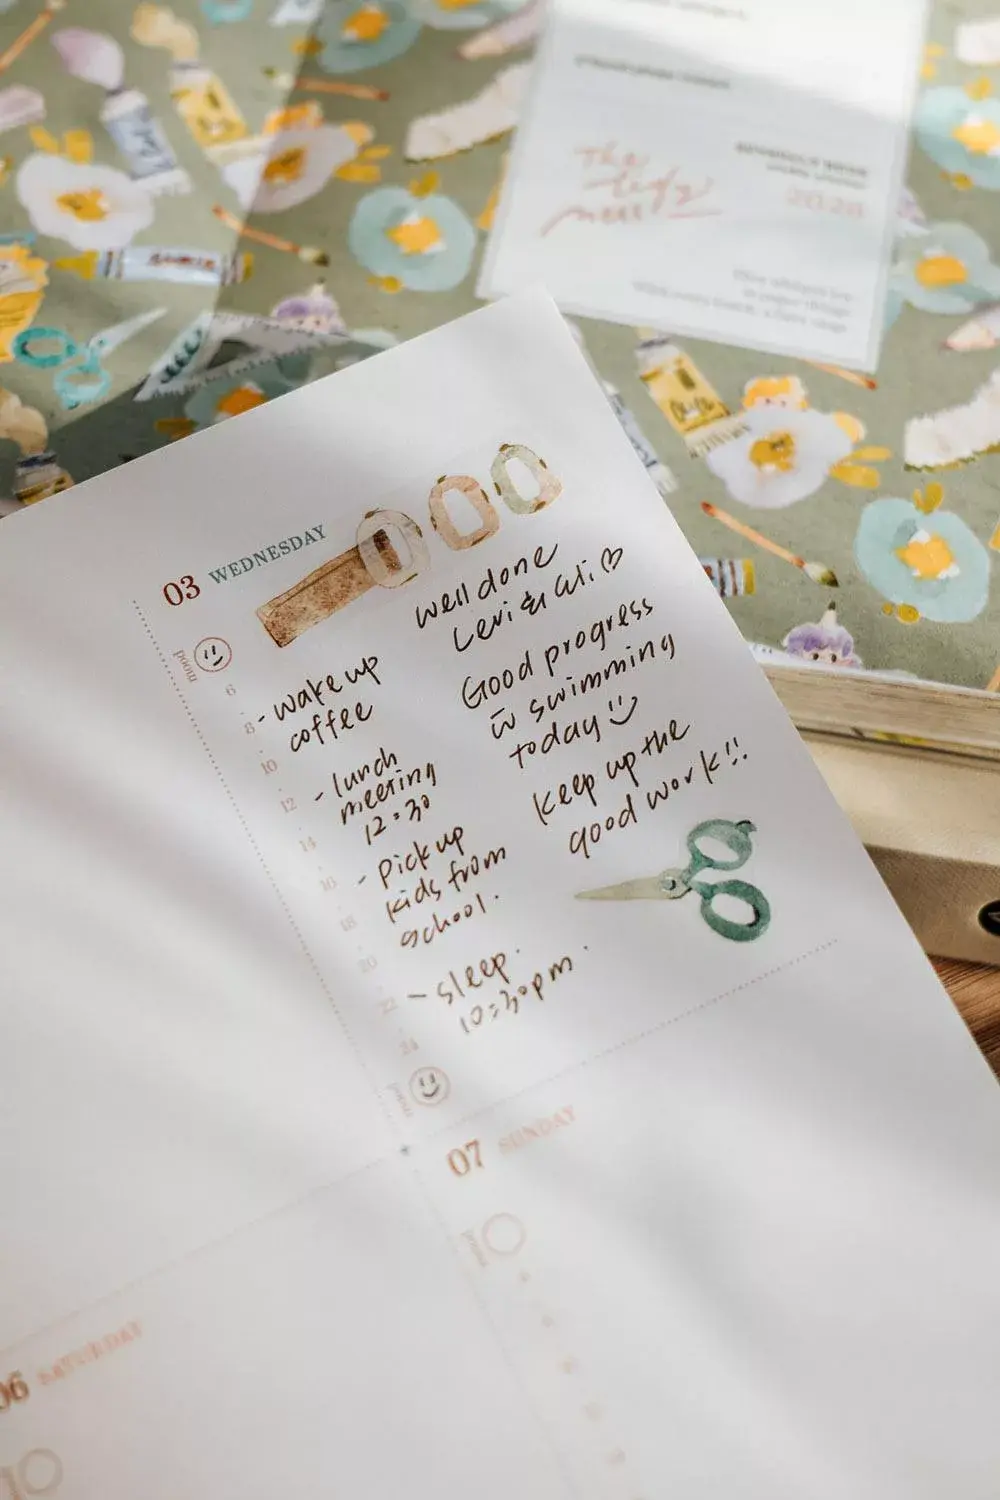 The
tidy
2026
03 WEDNESDAY
mood
6
8
10
12
14
16
18
20
22
24
mood
- wake up
coffee
- lunch
meeting
12:30
- Pick up
kids from
school.
- sleep.
10:30pm.
well done
Levi & Ali ♡
Good progress
in swimming
today
keep up the
good work!!
07 SUNDAY
mood
06 SATURDAY